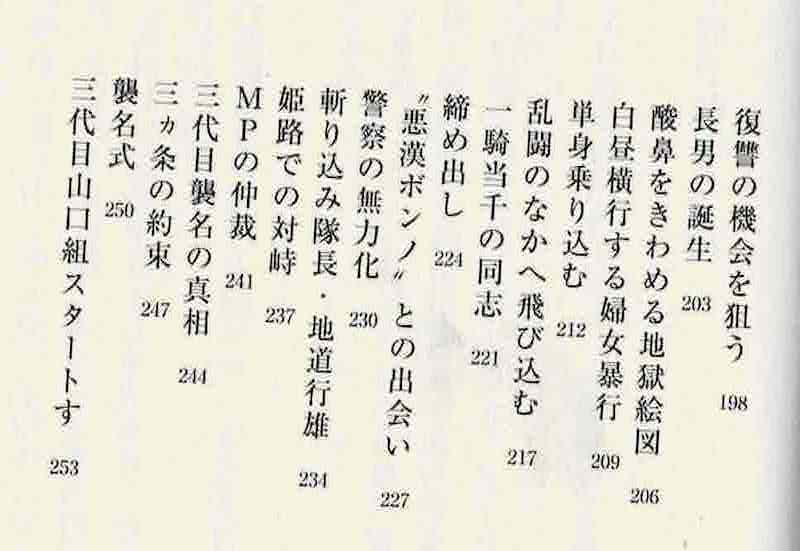 復讐の機会を狙う 198
長男の誕生 203
酸鼻をきわめる地獄絵図 206
白昼横行する婦女暴行 209
単身乗り込む 212
乱闘のなかへ飛び込む 217
一騎当千の同志 221
締め出し 224
〝悪漢ボンノ〟との出会い 227
警察の無力化 230
斬り込み隊長・地道行雄 234
姫路での対峙 237
MPの仲裁 241
三代目襲名の真相 244
三ヵ条の約束 247
襲名式 250
三代目山口組スタートす 253